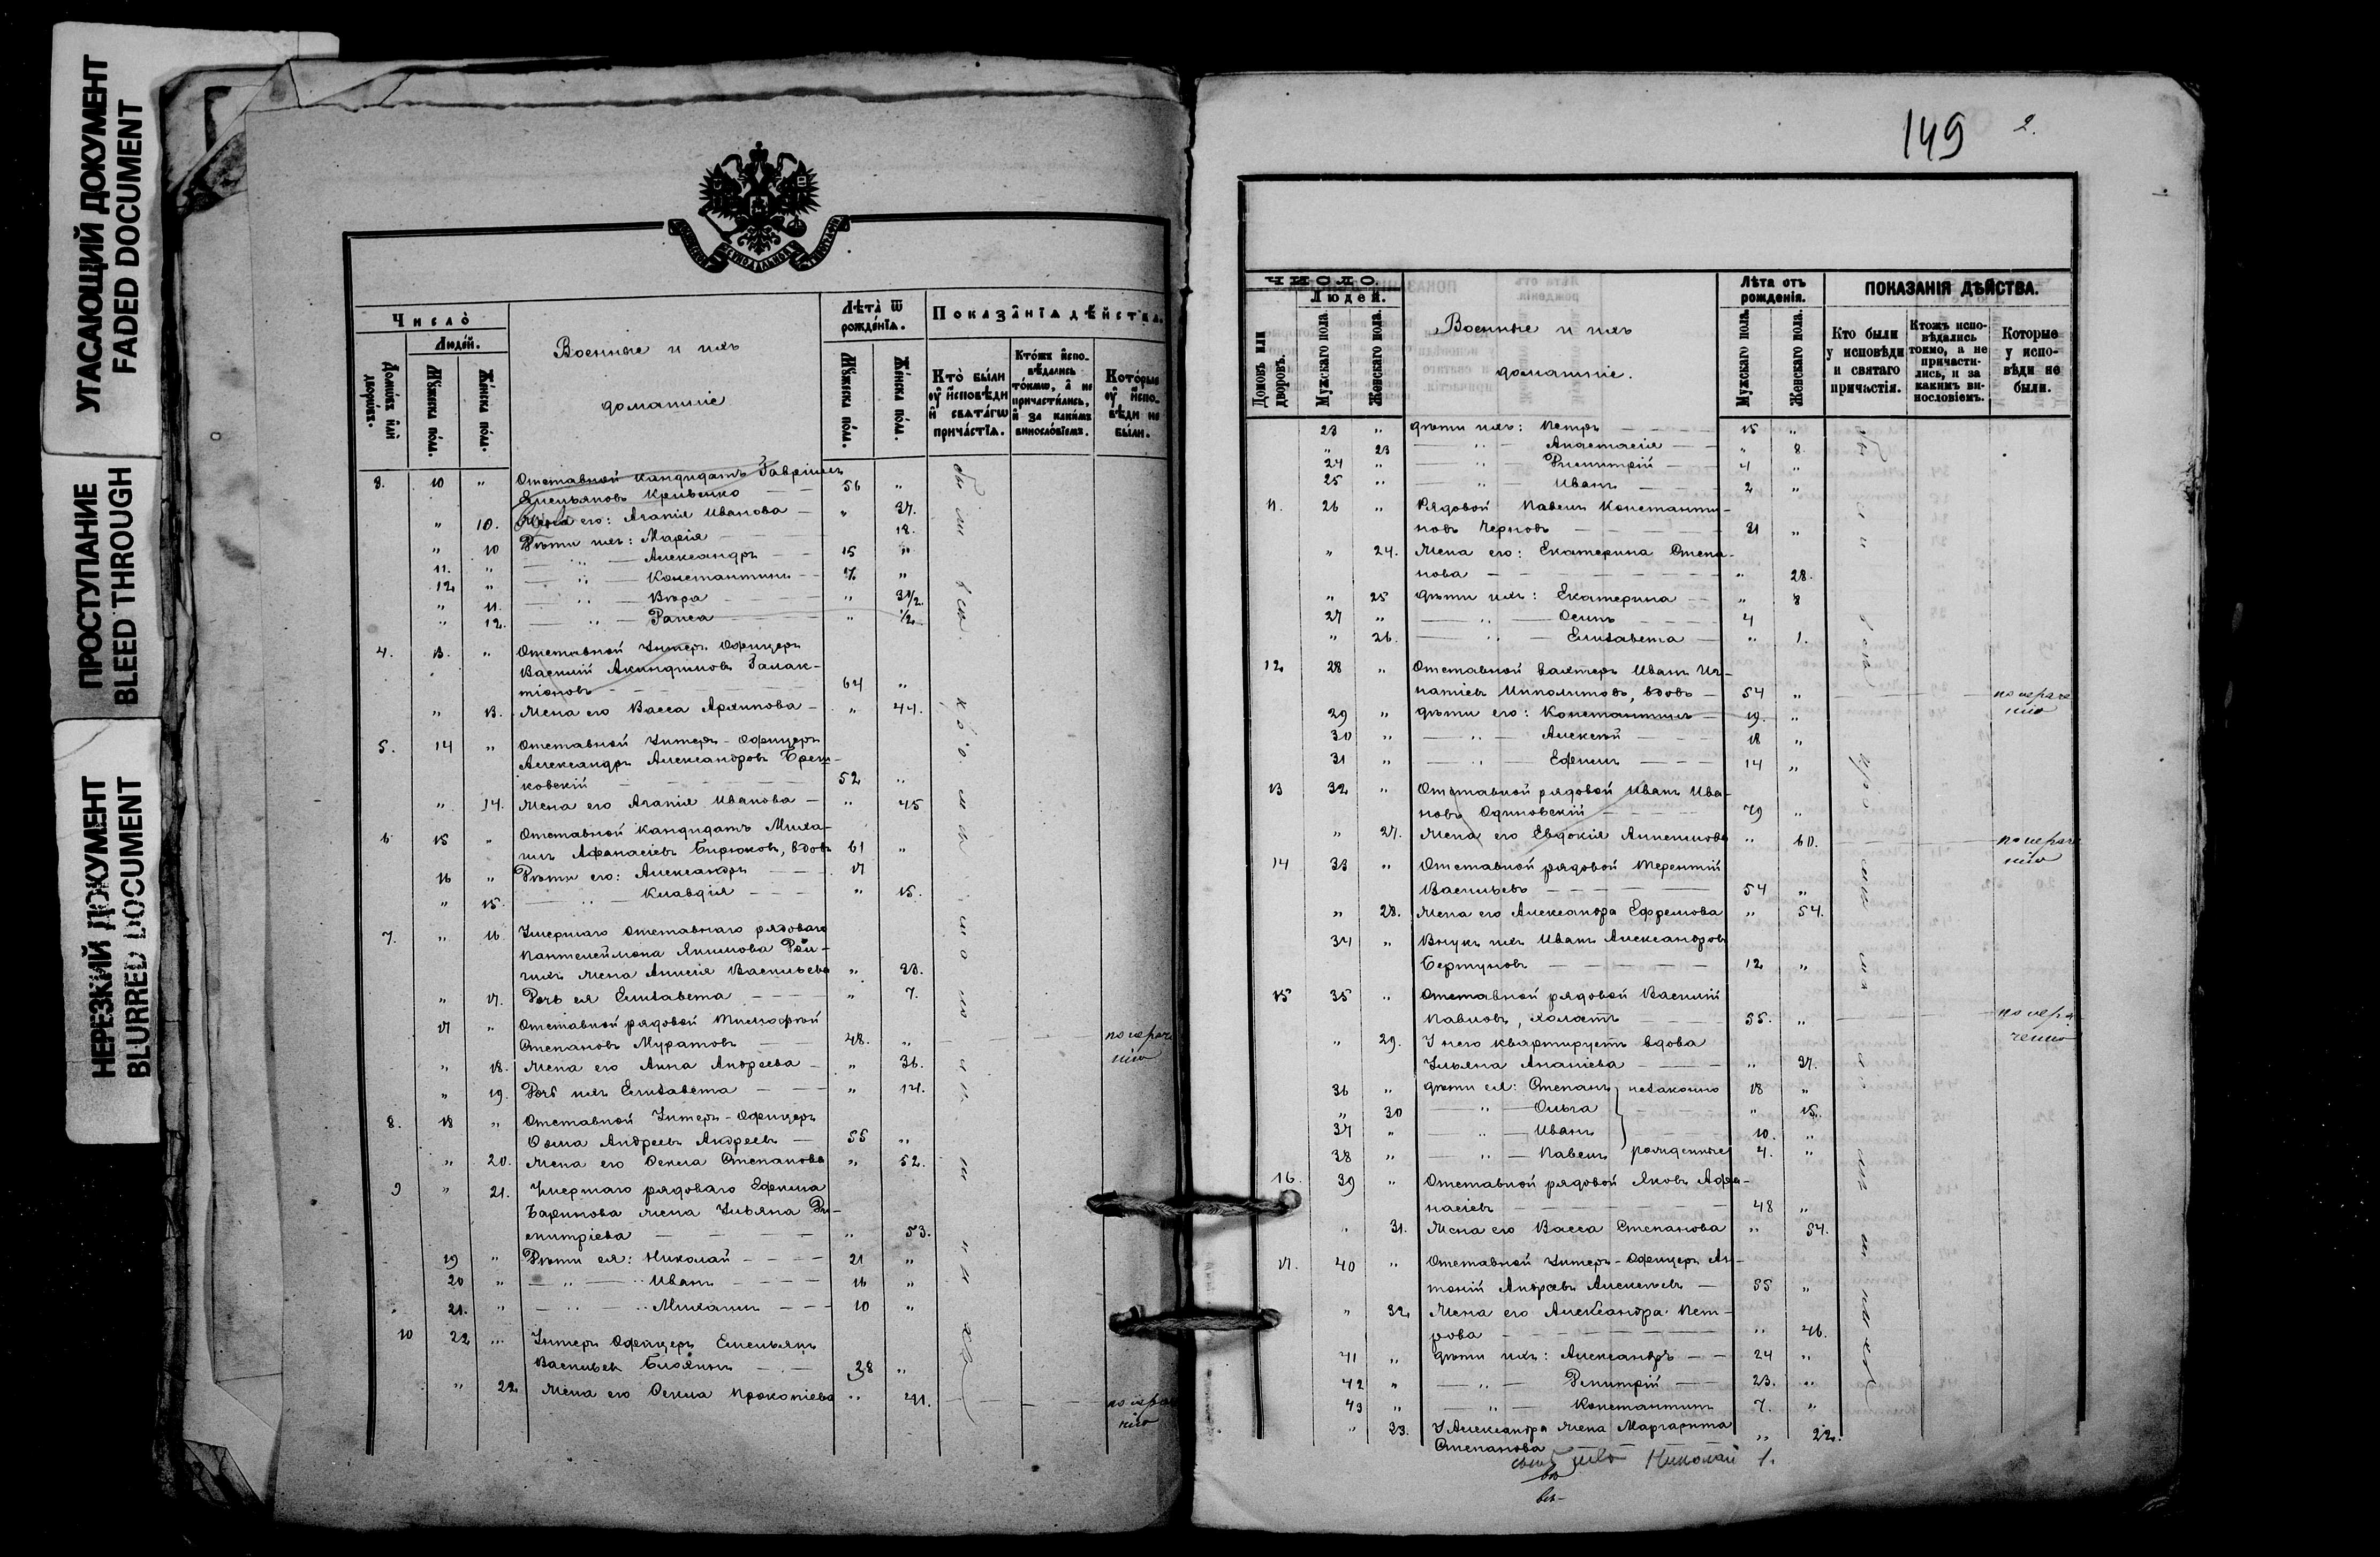 УГАСАЮЩИЙ ДОКУМЕНТ
FADED DOCUMENT
ПРОСТУПАНИЕ
BLEED THROUGH
НЕРЕЗКИЙ ДОКУМЕНТ
BLURRED DOCUMENT
Число̀
Люде́й.
Военные и ихъ
домашніе
Лѣта̀ ѿ
рожде́нїѧ.
Показа̑нїѧ дѣ́йства.
Домѡ́въ и҆лѝ дворѡ́въ.
Мꙋ́жеска по́лꙋ.
Же́нска по́лꙋ.
Мꙋ́жеска по́лꙋ.
Же́нска по́лꙋ.
Кто̀ бы́ли ᲂу҆ и҆сповѣ́ди и҆ свѧта́гѡ прича́стїѧ.
Кто́жъ и҆спо-вѣ́дались то́кмѡ, а҆ не причасти́лись, и҆ за каки́мъ виносло́вїемъ.
Кото́рые ᲂу҆ и҆спо-вѣ́ди не бы́ли.
3. 10 " Отставной кандидатъ Гавріилъ
Емельяновъ Кривенко 56 "
" 10. Жена его: Агапія Иванова — " 37.
" 10 Дѣти ихъ: Марія 18.
11. " — " — Александръ 15 "
12. " — " — Константинъ 7. "
" 11. — " — Вѣра " 3 1/2.
" 12. — " — Раиса " 1/2
4. 13. " Отставной Унтеръ Офицеръ
Василій Акиндиновъ Галак-
тіоновъ 64 "
" 13. Жена его Васса Архипова — " 44.
5. 14 " Отставной Унтеръ-Офицеръ
Александръ Александровъ
ковскій 52 "
" 14. Жена его Агапія Иванова — " 45
6 15 " Отставной кандидатъ Миха-
илъ Афанасіевъ Бирюковъ, вдовъ 61 "
16 " Дѣти его: Александръ 17
" 15. — " — Клавдія " 15.
7. " 16. Умершаго отставнаго рядоваго
Пантелеймона Якимова
жена Анисія Васильева " 23.
" 17. Дочь ея Елизавета " 7.
17 " Отставной рядовой Тимофей
Степановъ Муратовъ 48. "
" 18. Жена его Анна Андреева " 36.
" 19. Дочь ихъ Елизавета " 14.
8. 18 " Отставной Унтеръ-Офицеръ
Ѳома Андреевъ Андреевъ — 55 "
" 20. Жена его Ѳекла Степанова " 52.
9 " 21. Умершаго рядоваго Ефима
Баринова жена Ульяна Ди-
митріева " 53.
19 " Дѣти ея: Николай 21 "
20 " — " — Иванъ 16 "
21. " — " — Михаилъ 10 "
10 22 " Унтеръ Офицеръ Емельянъ
Васильевъ 38 "
" 22 Жена его Ѳекла Прокопіева " 41.
149 2.
ЧИСЛО.
Людей.
Военные и ихъ
домашніе.
Лѣта отъ
рожденія.
ПОКАЗАНІЯ ДѢЙСТВА.
Домовъ или дворовъ.
Мужскаго пола.
Женскаго пола.
Мужскаго пола.
Женскаго пола.
Кто были у исповѣди и святаго причастія.
Ктожъ испо-вѣдались токмо, а не причасти-лись, и за какимъ ви-нословіемъ.
Которые у испо-вѣди не были.
23 " Дѣти ихъ: Петръ 15 "
" 23 — " — Анастасія " 8.
24 " — " — Димитрій 4 "
25 " — " — Иванъ 2 "
11. 26 " Рядовой Павелъ Константи-
новъ Черновъ 31 "
" 24. Жена его: Екатерина Степа-
нова " 28.
" 25 Дѣти ихъ: Екатерина " 8
27 " — " — Осипъ 4
" 26. — " — Елизавета " 1.
12 28 " Отставной вахтеръ Иванъ Иг-
натіевъ Ипполитовъ, вдовъ — 54 "
29 " Дѣти его: Константинъ 19. "
30 " — " — Алексѣй 18 "
31 " — " — Ефимъ 14 "
13 32 " Отставной рядовой Иванъ Ива-
новъ Одиновскій 79 "
" 27. Жена его Евдокія " 60.
14 33 " Отставной рядовой Терентій
Васильевъ 54 "
" 28. Жена его Александра Ефремова " 54.
34 " Внукъ ихъ Иванъ Александровъ
Бертуновъ 12 "
15 35 " Отставной рядовой Василій
Павловъ, холостъ 55. "
" 29. У него квартируетъ вдова
Ульяна Ананіева " 37.
36 " Дѣти ея: Степанъ незаконно 18 "
" 30 — " — Ольга " 15.
37 " — " — Иванъ 10. "
38 " — " — Павелъ рожденные 4. "
16. 39 " Отставной рядовой Яковъ Афа-
насіевъ 48 "
" 31. Жена его Васса Степанова " 54.
17. 40 " Отставной Унтеръ-Офицеръ Ан-
тоній Андреевъ Алексѣевъ 55 "
" 32 Жена его Александра Пет-
рова " 46.
41 " Дѣти ихъ: Александръ 24 "
42 " — " — Димитрій 23. "
43 " — " — Константинъ 7. "
" 33. У Александра жена Маргарита
Степанова " 22.
сынъ Николай 1.